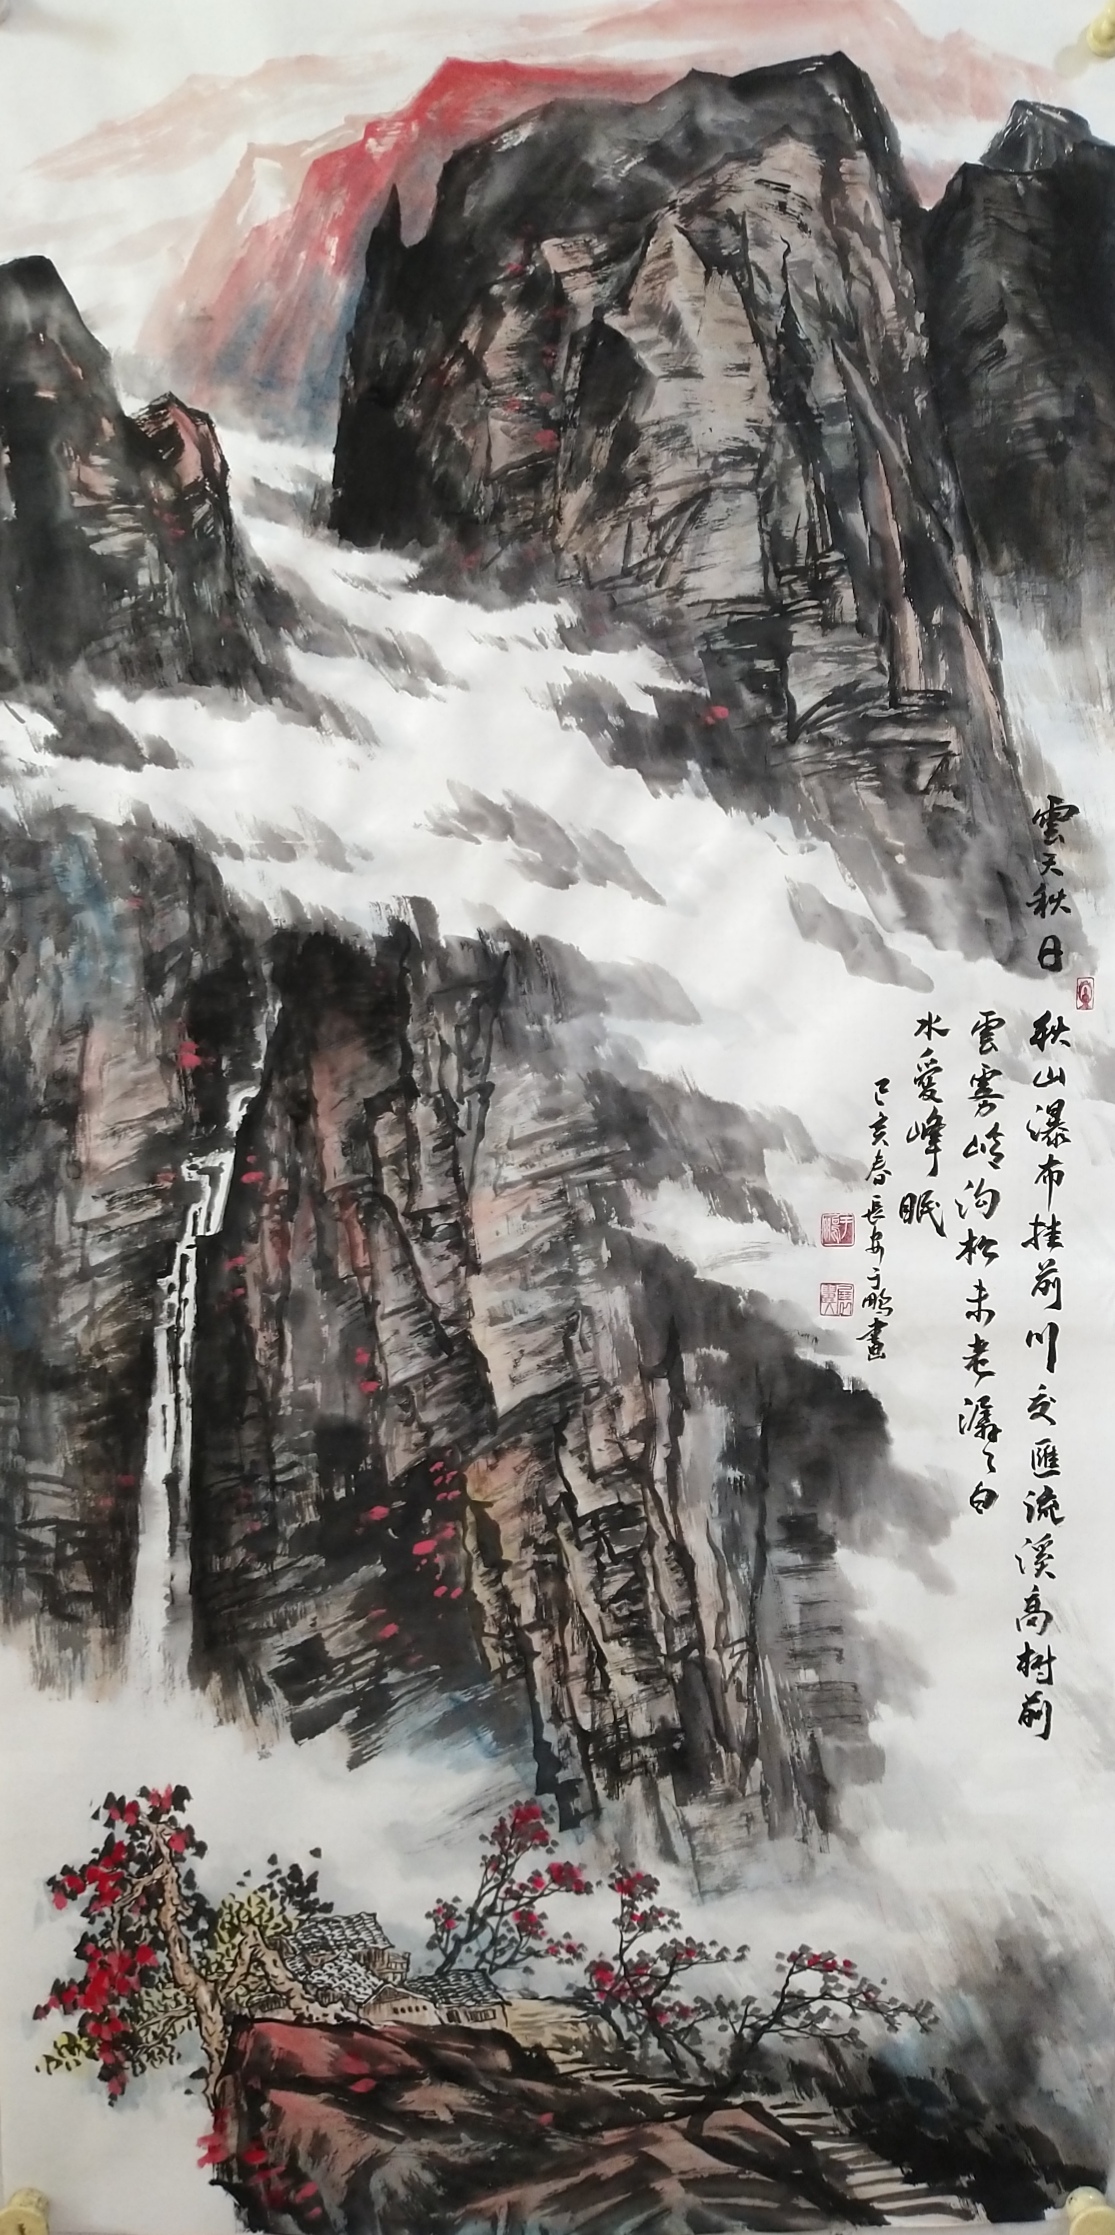 雲天秋日
秋山瀑布挂前川交匯流溪高树前
雲雾岭沟松未老潺〻白
水爱峰眠
己亥春長安于鹏畫